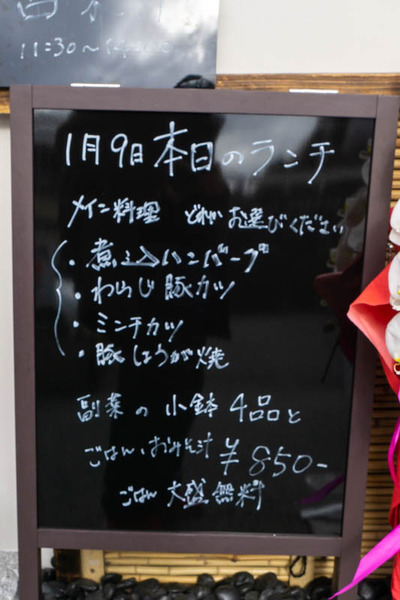 11:30~14:00
1月9日本日のランチ
メイン料理 どれかお選びください
・煮込みハンバーグ
・わらじ豚カツ
・ミンチカツ
・豚しょうが焼
副菜の小鉢4品と
ごはん、おみそ汁 ¥850-
ごはん大盛無料